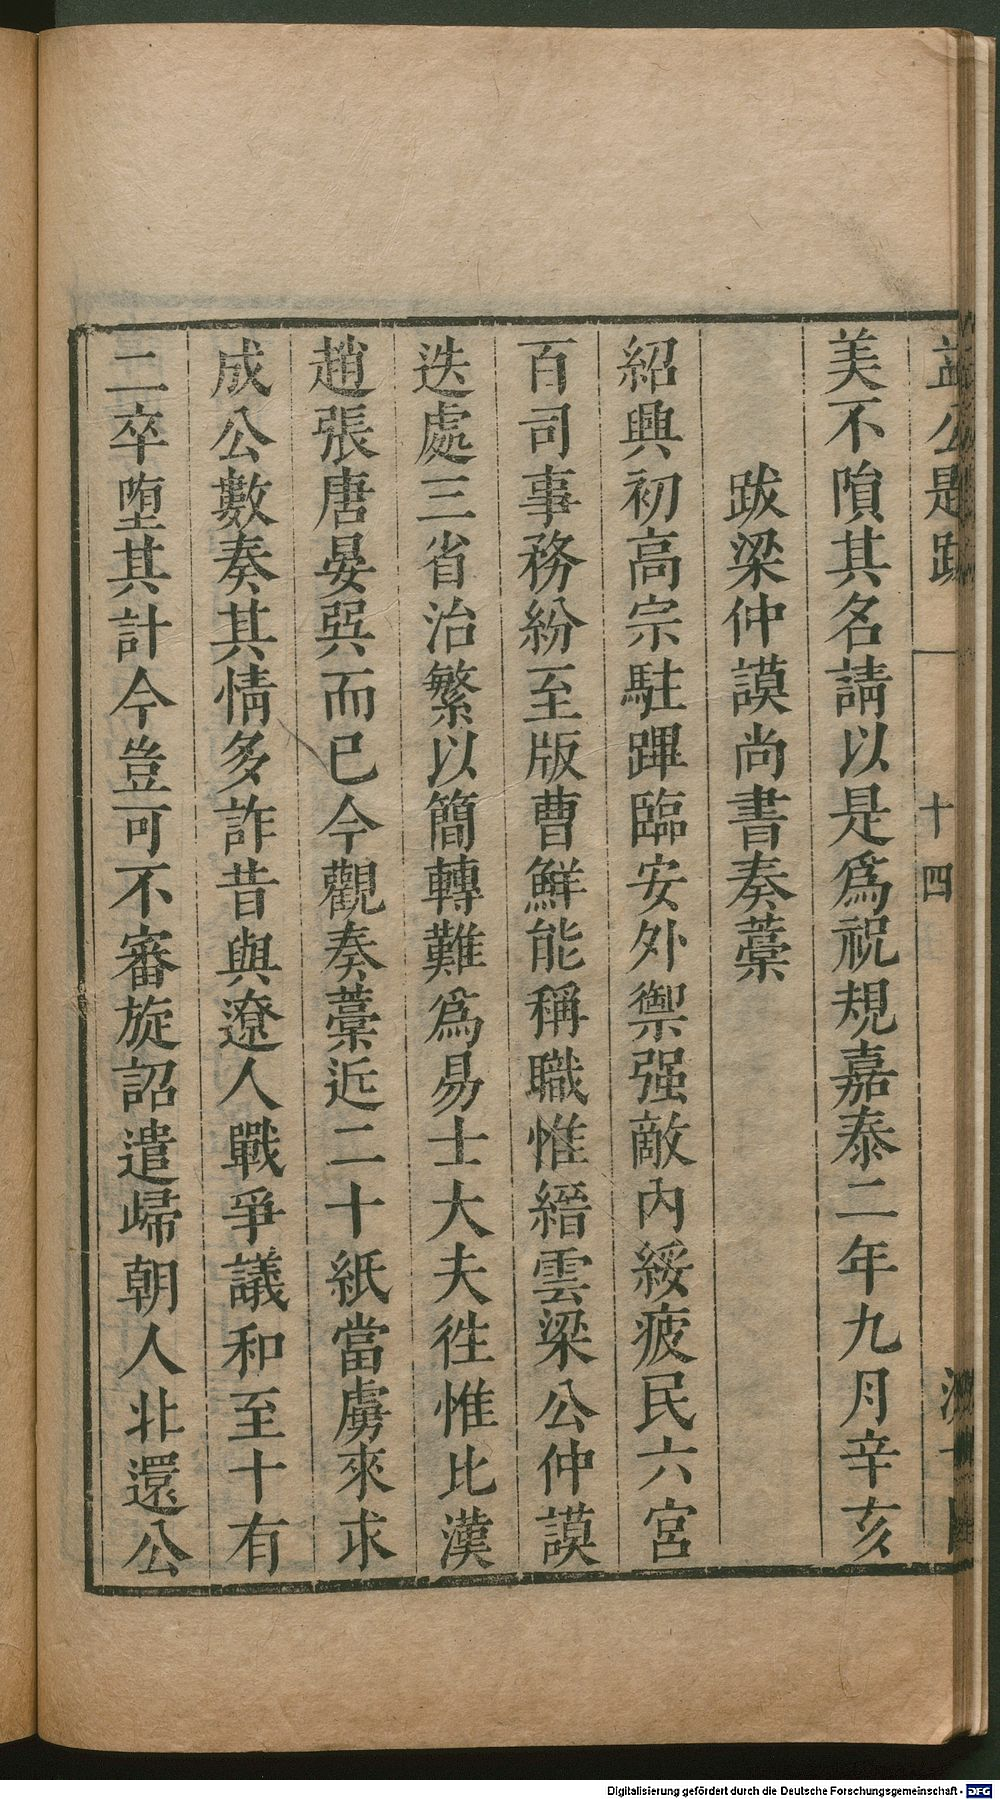 益公題跋
十四
美不隕其名請以是爲祝規嘉泰二年九月辛亥
跋梁仲謨尚書奏藁
紹興初高宗駐蹕臨安外禦强敵內綏疲民六宮
百司事務紛至版曹鮮能稱職惟縉雲梁公仲謨
迭處三省治繁以簡轉難爲易士大夫徃惟比漢
趙張唐晏㢲而已今觀奏藁近二十紙當虜來求
成公數奏其情多詐昔與遼人戰爭議和至十有
二卒堕其計今豈可不審旋詔遣歸朝人北還公
Digitalisierung gefördert durch die Deutsche Forschungsgemeinschaft - DFG